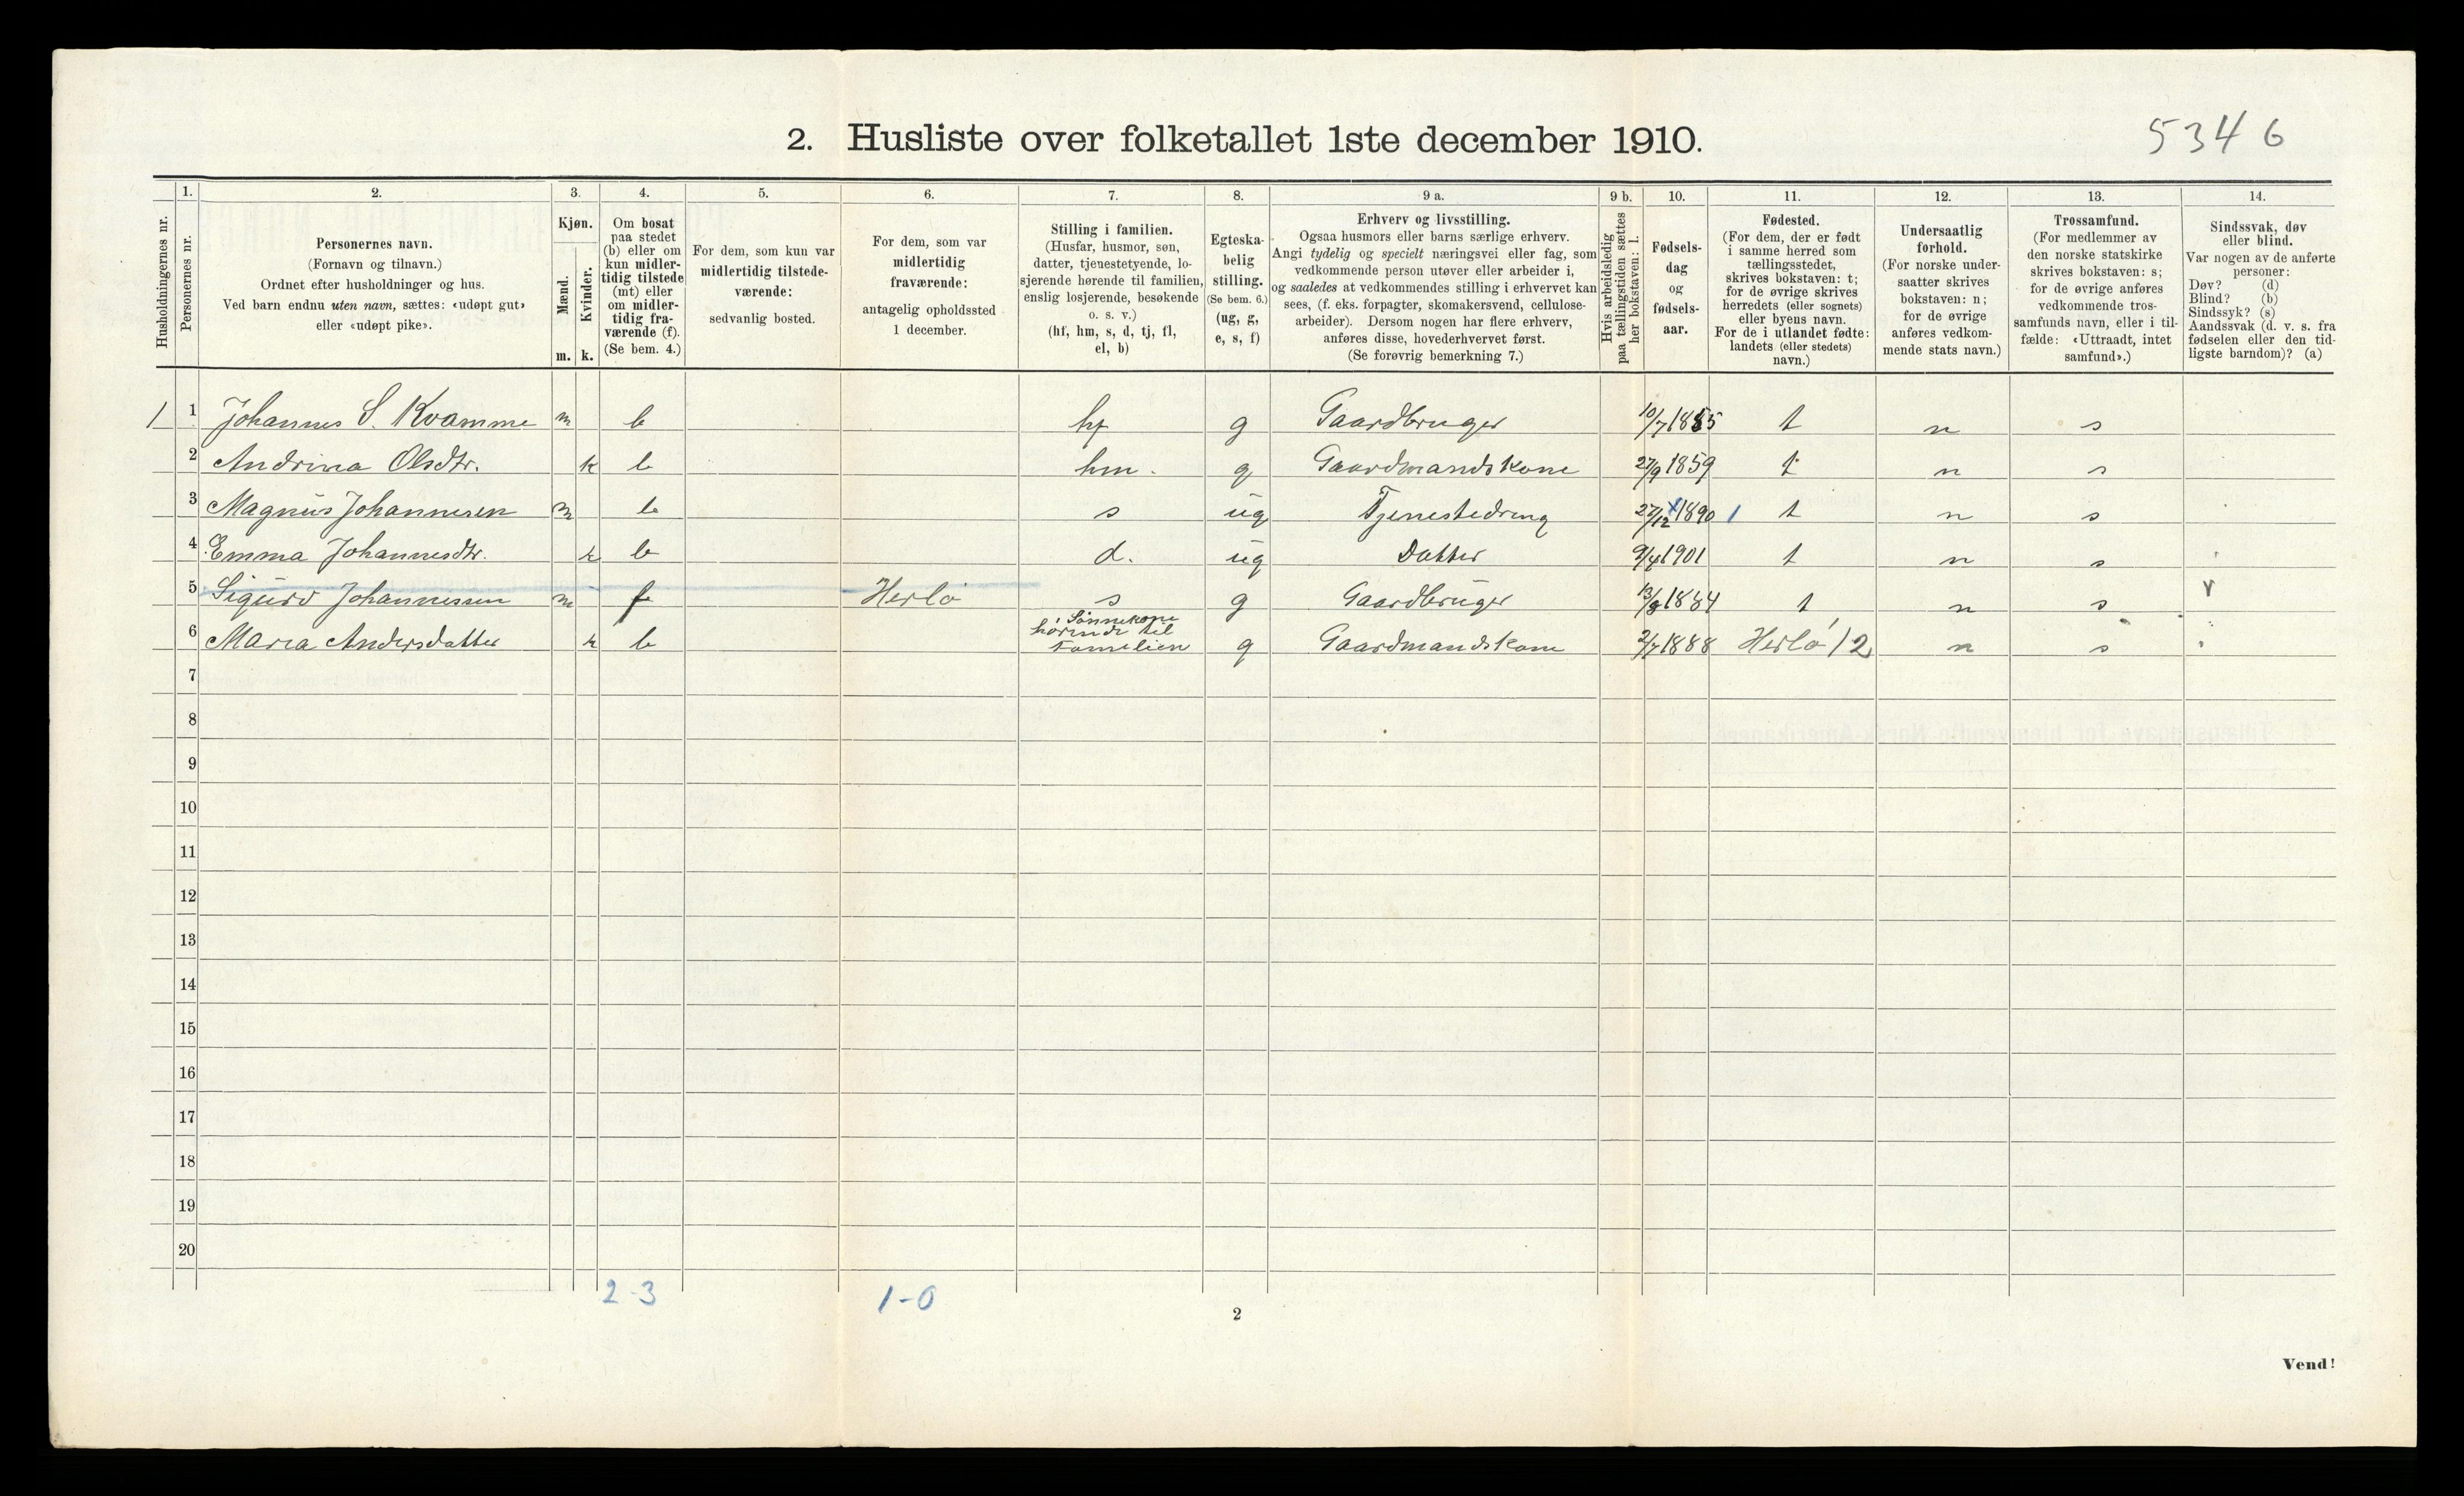 5346
2. Husliste over folketallet 1ste december 1910.
Husholdningernes nr.
1. Personernes nr.
2. Personernes navn.
(Fornavn og tilnavn.)
Ordnet efter husholdninger og hus.
Ved barn endnu uten navn, sættes: «udøpt gut»
eller «udøpt pike».
3. Kjøn.
Mænd. m.
Kvinder. k.
4. Om bosat
paa stedet
(b) eller om
kun midler-
tidig tilstede
(mt) eller
om midler-
tidig fra-
værende (f).
(Se bem. 4.)
5. For dem, som kun var
midlertidig tilstede-
værende:
sedvanlig bosted.
6. For dem, som var
midlertidig
fraværende:
antagelig opholdssted
1 december.
7. Stilling i familien.
(Husfar, husmor, søn,
datter, tjenestetyende, lo-
sjerende hørende til familien,
enslig losjerende, besøkende
o. s. v.)
(hf, hm, s, d, tj, fl,
el, b)
8. Egteska-
belig
stilling.
(Se bem. 6.)
(ug, g,
e, s, f)
9 a. Erhverv og livsstilling.
Ogsaa husmors eller barns særlige erhverv.
Angi tydelig og specielt næringsvei eller fag, som
vedkommende person utøver eller arbeider i,
og saaledes at vedkommendes stilling i erhvervet kan
sees, (f. eks. forpagter, skomakersvend, cellulose-
arbeider). Dersom nogen har flere erhverv,
anføres disse, hovederhvervet først.
(Se forøvrig bemerkning 7.)
9 b. Hvis arbeidsledig
paa tællingstiden sættes
her bokstaven: l.
10. Fødsels-
dag
og
fødsels-
aar.
11. Fødested.
(For dem, der er født
i samme herred som
tællingsstedet,
skrives bokstaven: t;
for de øvrige skrives
herredets (eller sognets)
eller byens navn.
For de i utlandet fødte:
landets (eller stedets)
navn.)
12. Undersaatlig
forhold.
(For norske under-
saatter skrives
bokstaven: n;
for de øvrige
anføres vedkom-
mende stats navn.)
13. Trossamfund.
(For medlemmer av
den norske statskirke
skrives bokstaven: s;
for de øvrige anføres
vedkommende tros-
samfunds navn, eller i til-
fælde: «Uttraadt, intet
samfund».)
14. Sindssvak, døv
eller blind.
Var nogen av de anførte
personer:
Døv? (d)
Blind? (b)
Sindssyk? (s)
Aandssvak (d. v. s. fra
fødselen eller den tid-
ligste barndom)? (a)
1 1 Johannes S. Kvamme m b hf g Gaardbruger 10/7 1855 t n s
2 Andrina Olsdtr. k b hm. g Gaardmandskone 27/9 1859 t n s
3 Magnus Johannesen m b s ug Tjenestedreng 27/12 1890 1 t n s
4 Emma Johannesdtr. k b d. ug Datter 9/4 1901 t n s
5 Sigurd Johannessen m f Herlö s g Gaardbruger 13/8 1884 t n s v
6 Maria Andersdatter k b Sönnekone hörende til Familien g Gaardmandskone 2/7 1888 Herlö 12 n s
7
8
9
10
11
12
13
14
15
16
17
18
19
20
2-3 1-0
2
Vend!